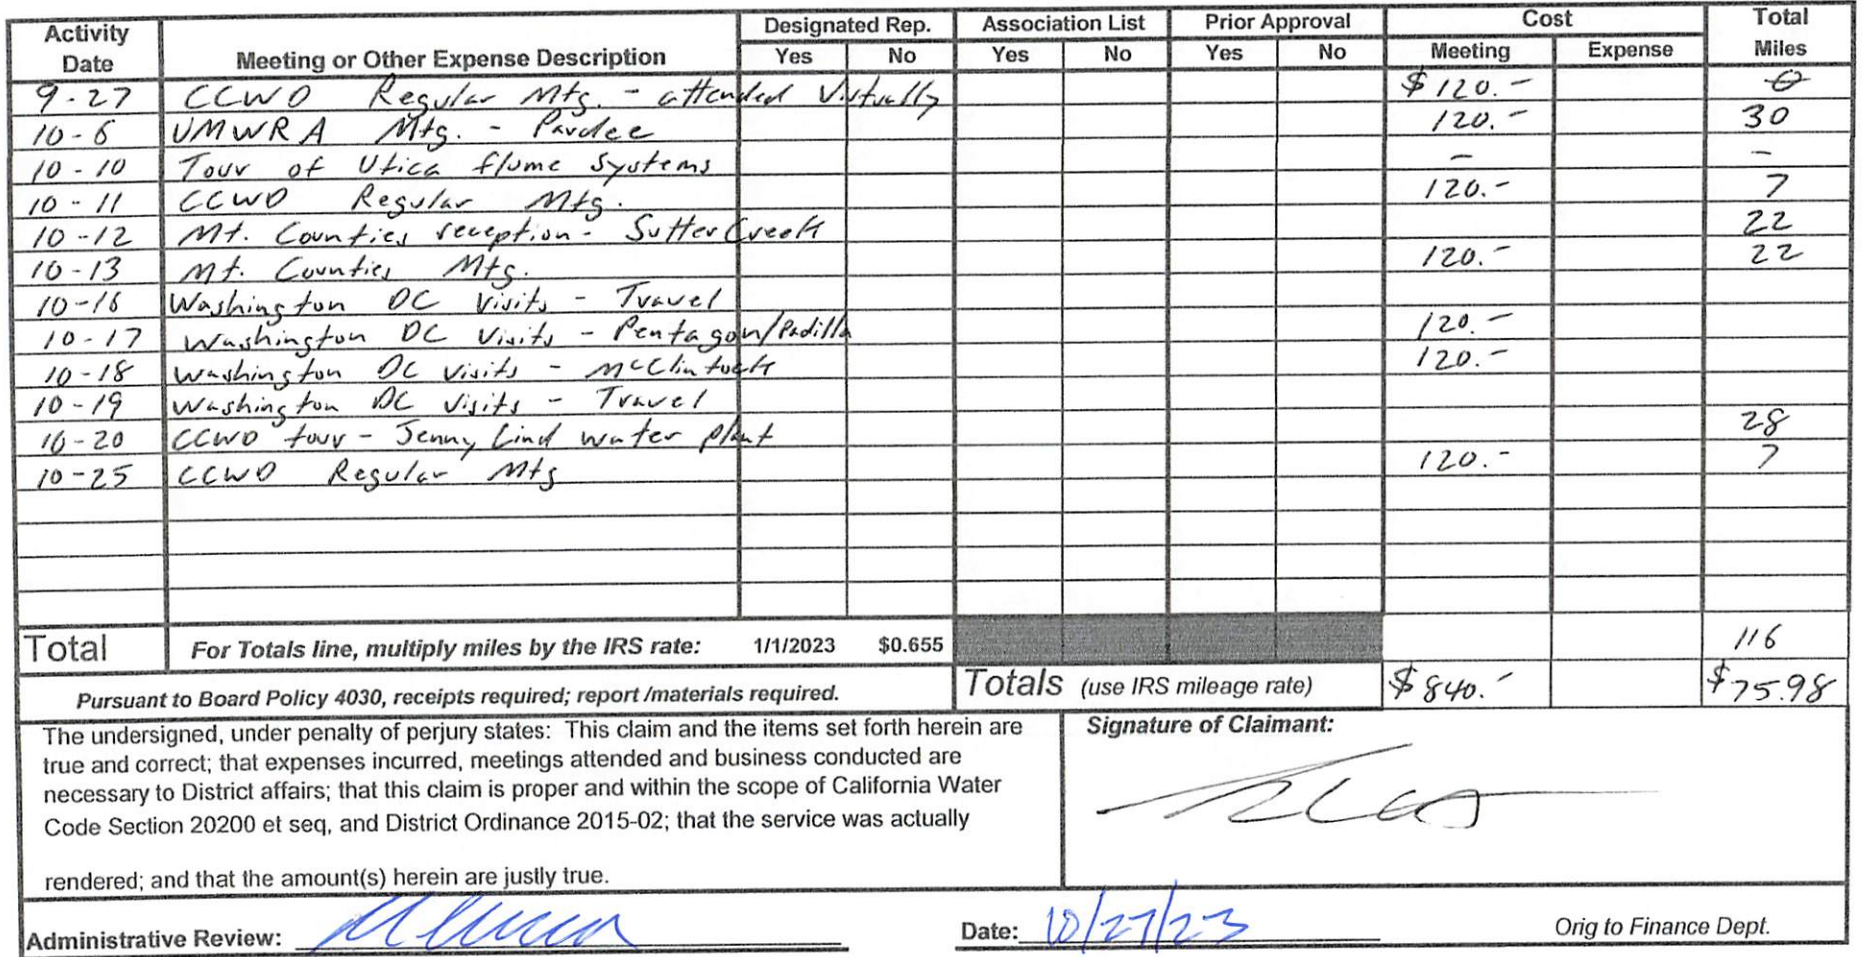 Activity Date Meeting or Other Expense Description Designated Rep. Yes No Association List Yes No Prior Approval Yes No Cost Meeting Expense Total Miles
9-27 CCWD Regular Mtg. - attended Virtually $120.- 0
10-6 UMWRA Mtg. - Pardee 120.- 30
10-10 Tour of Utica flume Systems - -
10-11 CCWD Regular Mtg. 120.- 7
10-12 Mt. Counties reception - Sutter Creek 22
10-13 Mt. Counties Mtg. 120.- 22
10-16 Washington DC Visits - Travel
10-17 Washington DC Visits - Pentagon/Padilla 120.-
10-18 Washington DC Visits - McClintock 120.-
10-19 Washington DC Visits - Travel
10-20 CCWD tour - Jenny Lind water plant 28
10-25 CCWD Regular Mtg 120.- 7
Total For Totals line, multiply miles by the IRS rate: 1/1/2023 $0.655 116
Pursuant to Board Policy 4030, receipts required; report /materials required. Totals (use IRS mileage rate) $840.- $75.98
The undersigned, under penalty of perjury states: This claim and the items set forth herein are
true and correct; that expenses incurred, meetings attended and business conducted are
necessary to District affairs; that this claim is proper and within the scope of California Water
Code Section 20200 et seq, and District Ordinance 2015-02; that the service was actually
rendered; and that the amount(s) herein are justly true.
Signature of Claimant:
Administrative Review: Date: 10/27/23 Orig to Finance Dept.